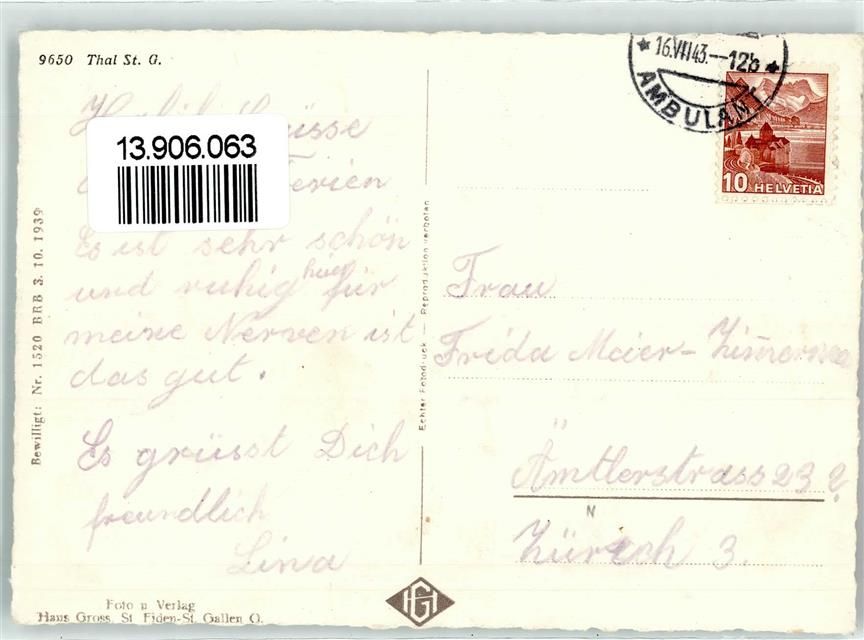 9650 Thal St. G.
13.906.063
Herzliche Grüsse
Ferien
Es ist sehr schön
und ruhig hier für
meine Nerven ist
das gut.
Es grüsst Dich
freundlich
Lina
Foto u Verlag
Hans Gross, St Fiden-St. Gallen O.
Bewilligt: Nr. 1520 BRB 3. 10. 1939
Echter Fotodruck — Reproduktion verboten
HG
16.VII43.—12b
AMBULANT
10 HELVETIA
Frau
Frida Meier-Zimerman
Ämtlerstrass 23 ?
N
Zürich 3.